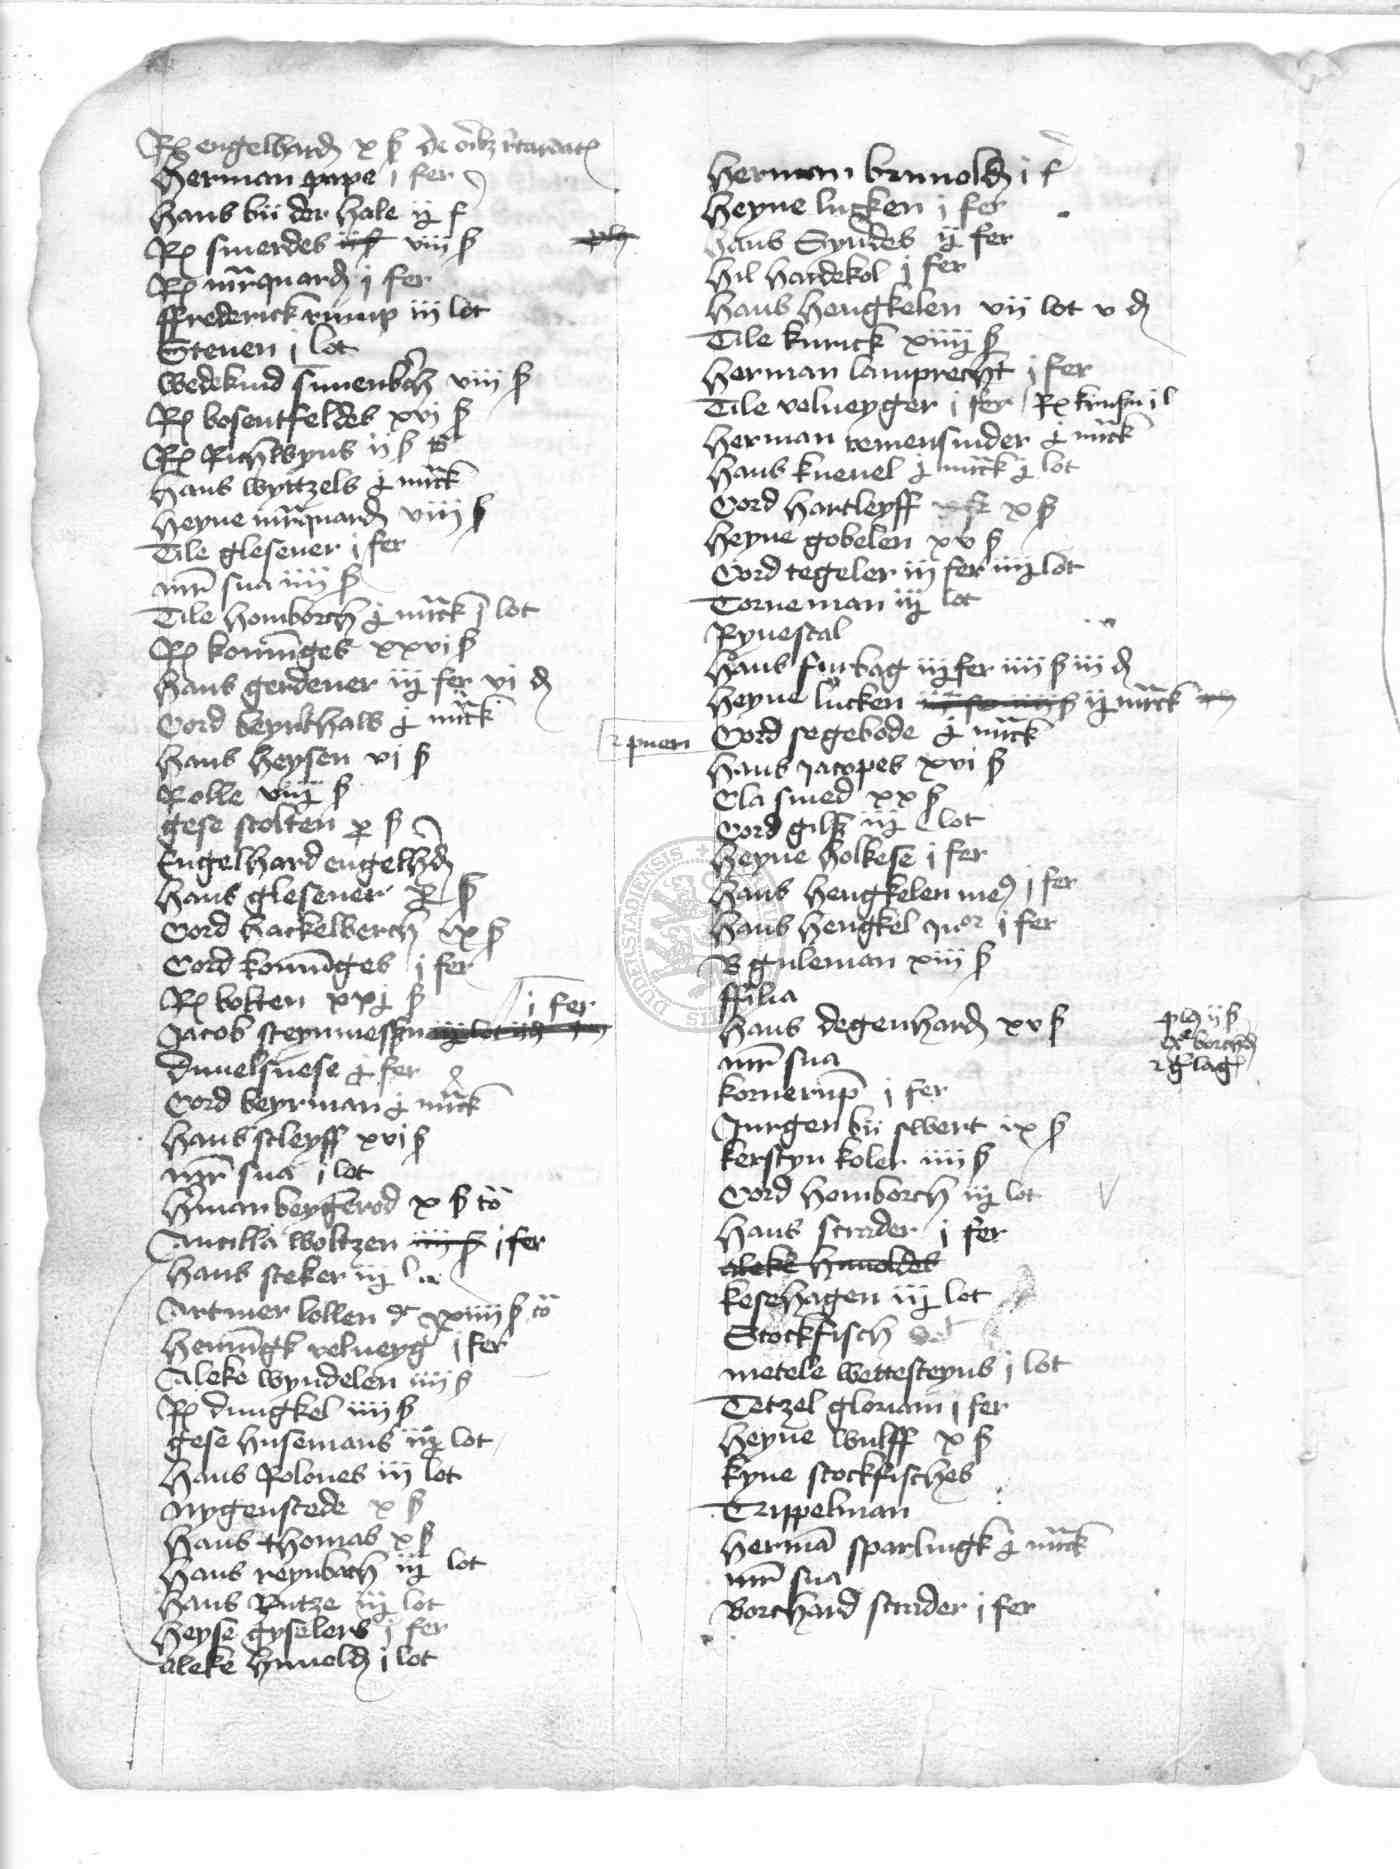 Rͤ engelhard x ß de
Herman pape i fer
Hans bii der hale ij f
Rͤ smerdes viij ß
Rͤ mrquard j fer
ffrederick rump iij lot
Steuen j lot
Wedekind viij ß
Rͤ bosentfeldes xvj ß
Rͤ Richwyns ij ß
Hans wyttzels mrck
Heyne mrquard viij ß
Tile glesener i fer
mr sua iiij ß
Tile homborch mrck j lot
Rͤ konniges xxvi ß
Hans gerdener iij fer vi d
Cord beynthals mrck
Hans heysen vj ß
Rolle viij ß
gese stolten ß
Engelhard engelhd
Hans glesener ß
Cord hackelberch ix ß
Cord konniges j fer
Rͤ bolten xxj ß
Jacob i fer
duuelsnese fer
Cord beyrman mrck
Hans stleyff xvi ß
mr sua i lot
Hman beygerod x ß to
Ancilla woltzen iiij ß j fer
Hans steker iij
Artmer lollen xiiij ß to
Henningk velueyg j fer
Aleke wyndelen iiij ß
Rͤ dungkel iiij ß
gese husemans iij lot
Hans Rolones iij lot
Nygenstede x ß
Hans thomas x ß
Hans reynbach iij lot
Hans Rutze iij lot
Heyse gyselers j fer
aleke hunold j lot
Herman brunold i f
Heyne lugken j fer
Hans Syndes ij fer
Hil hardekol j fer
Hans hengkelen vij lot v d
Tile knrick xiiij ß
Herman lamprecht j fer
Tile velueyger i fer
Herman remensnider mrck
Hans kneuel mrck lot
Cord hartleyff x ß
Heyne gobelen xv ß
Cord tegeler iij fer iiij lot
Torneman iij lot
Rynestal
Hans iij fer iiij ß iij d
Heyne lucken ij mrck
pueri Cord segebode mrck
Hans Jacopes xvi ß
Cla smed xx ß
Cord iij lot
Heyne holkese i fer
Hans hengkelen j fer
Hans hengkel j fer
B guleman xiij ß
ffilia
Hans degenhard xv ß
mr sua
kornerup j fer
Jurgen bii swert ix ß
kerstyn koler iiij ß
Cord homborch iij lot
Hans strader j fer
aleke hunoldes
kesehagen iij lot
Stockfisch
metele wettesteyns j lot
Tetzel gloriam j fer
Heyne wulff x ß
kyne stockfisches
Trippelman
Hermā sparlingk mrck
mr sua
Borchard strader i fer